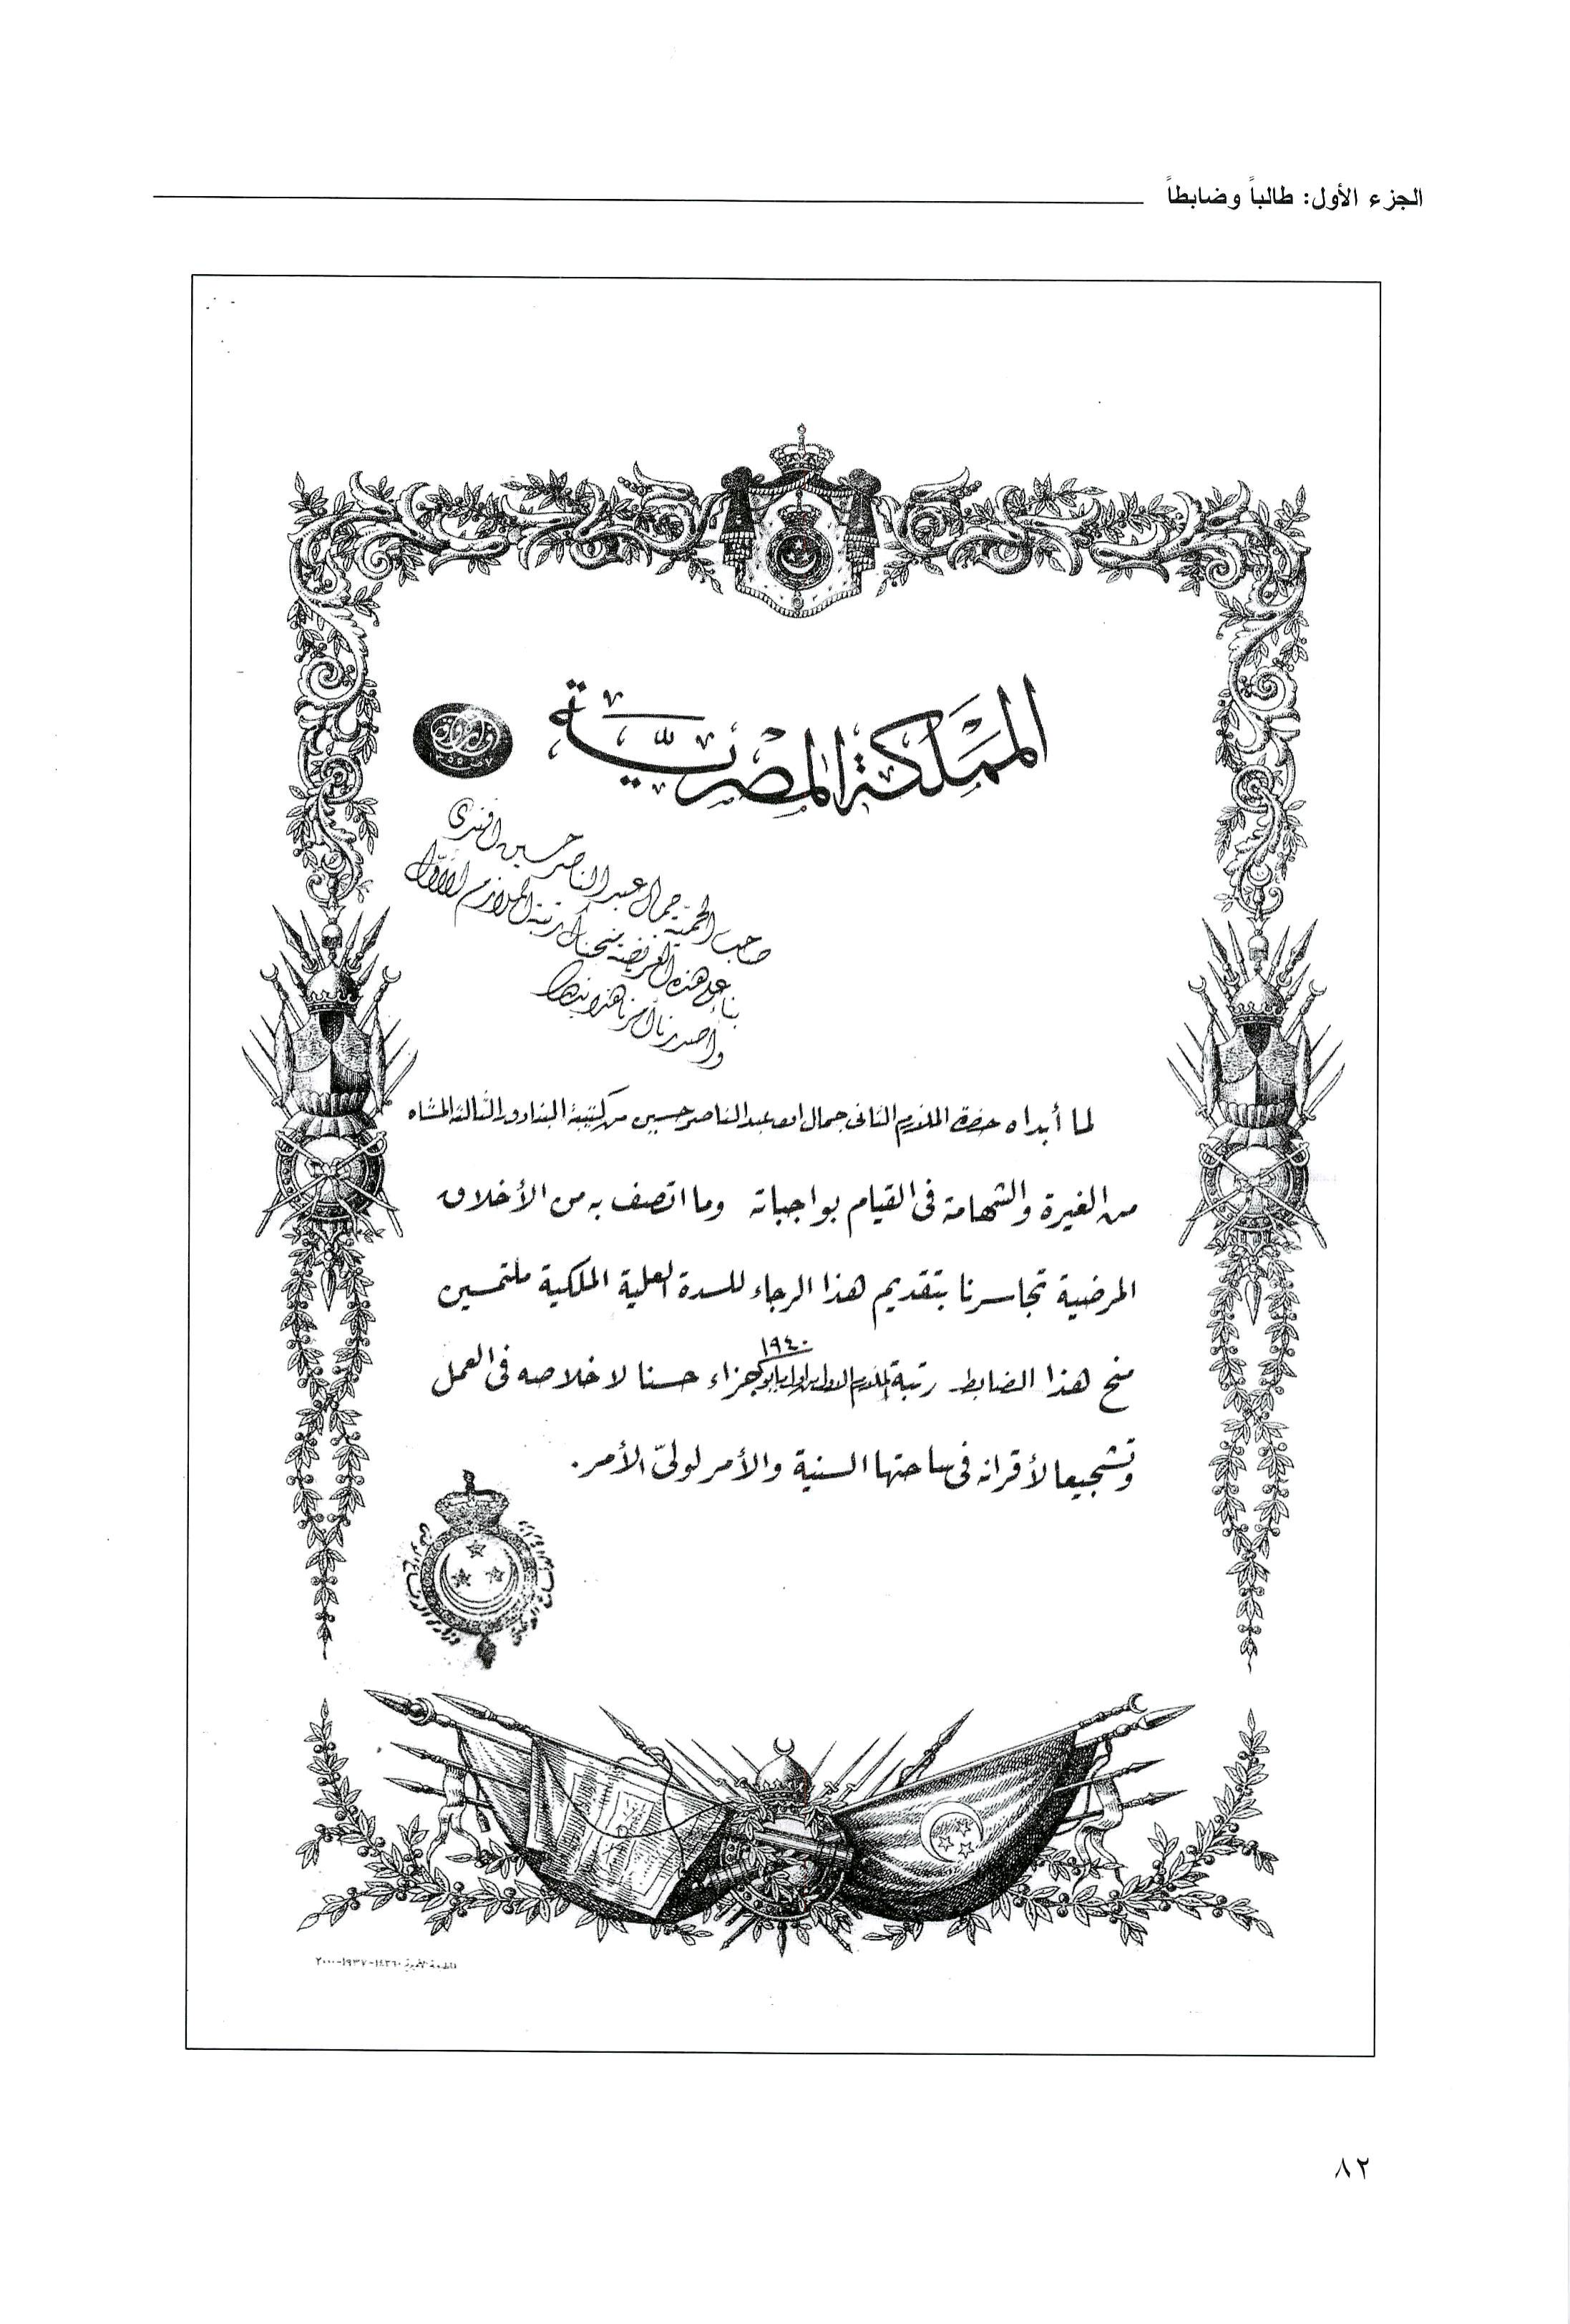 الجزء الأول: طالباً وضابطاً
المملكة المصرية
صاحب الحمية جمال عبد الناصر حسين افندى
بناء على هذه العريضة منحناك رتبة الملازم الأول
وأصدرنا أمرنا هذا
لما أبداه حضرة الملازم الثانى جمال عبد الناصر حسين من كتيبة البنادق الثالثة المشاه
من الغيرة والشهامة فى القيام بواجباته وما اتصف به من الأخلاق
المرضية تجاسرنا بتقديم هذا الرجاء للسدة العلية الملكية ملتمسين
١٩٤٠
منح هذا الضابط رتبة الملازم الأول من أول مايو جزاء حسنا لاخلاصه فى العمل
وتشجيعا لأقرانه فى ساحتها السنية والأمر لولىّ الأمر.
٨٢